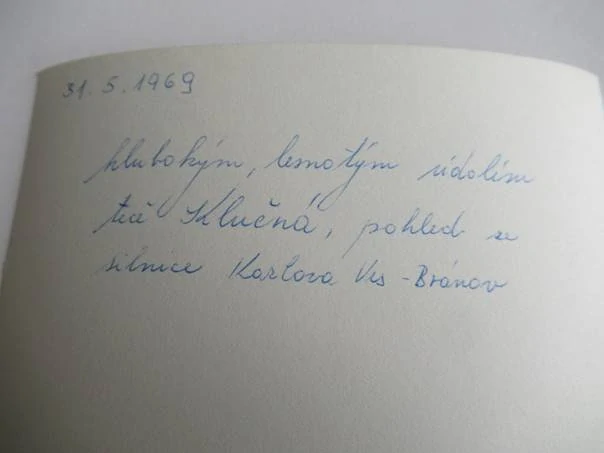 31. 5. 1969
hlubokým, lesnatým údolím
teče Klučná, pohled ze
silnice Karlova Ves - Bránov